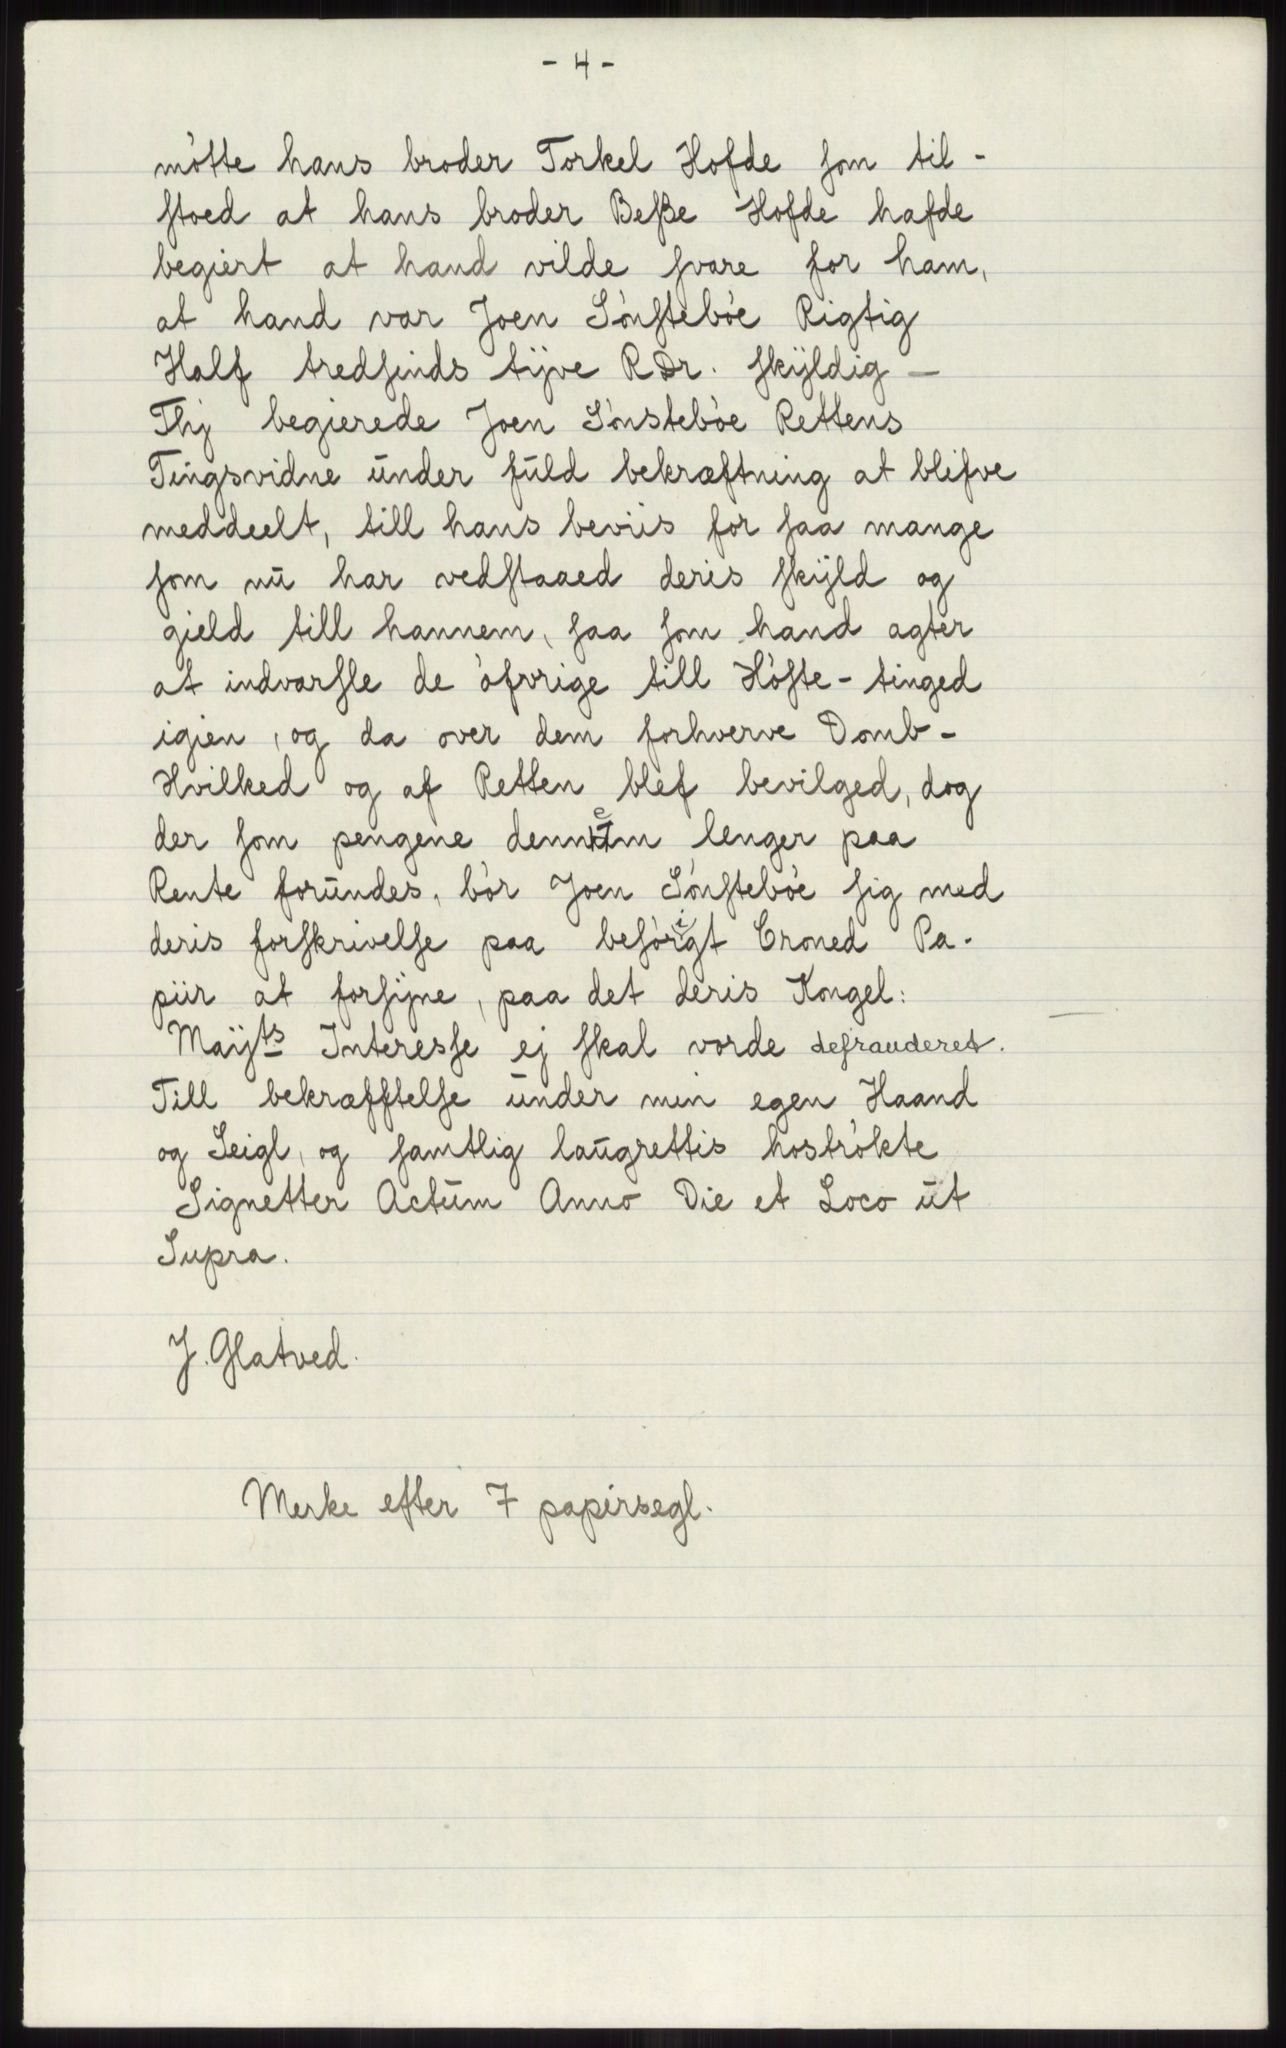 - 4 -
mòtte hans broder Torkel Hofde som til -
stoed at hans broder Beße Hofde hafde
begiert at hand vilde svare for ham,
at hand var Joen Sònstebòe Rigtig
Half tredsinds tÿve RDr. skÿldig —
Thj begierede Joen Sònstebòe Rettens
Tingsvidne ūnder fūld bekræftning at blifve
meddeelt, till hans beviis for saa mange
som nū har vedstaaed deris skÿld og
gield till hannem, saa som hand agter
at indvarsle de òfvrige till Hòste - tinged
igien, og da over dem forhverve Domb -
Hvilked og af Retten blef bevilged, dog
der som pengene dennem lenger paa
Rente forūndes, bòr Joen Sònstebòe sig med
deris forskrivelse paa behòrigt Croned Pa-
piir at forsÿne, paa det deris Kongel:
Maÿts Interesse ej skal vorde defrauderet.
Till bekræfftelse ūnder min egen Haand
og Seigl, og samtlig laūgrettis hostròkte
Signetter Actūm Anno Die et Loco ūt
Supra.
J. Glatved.
Merke efter 7 papirsegl.